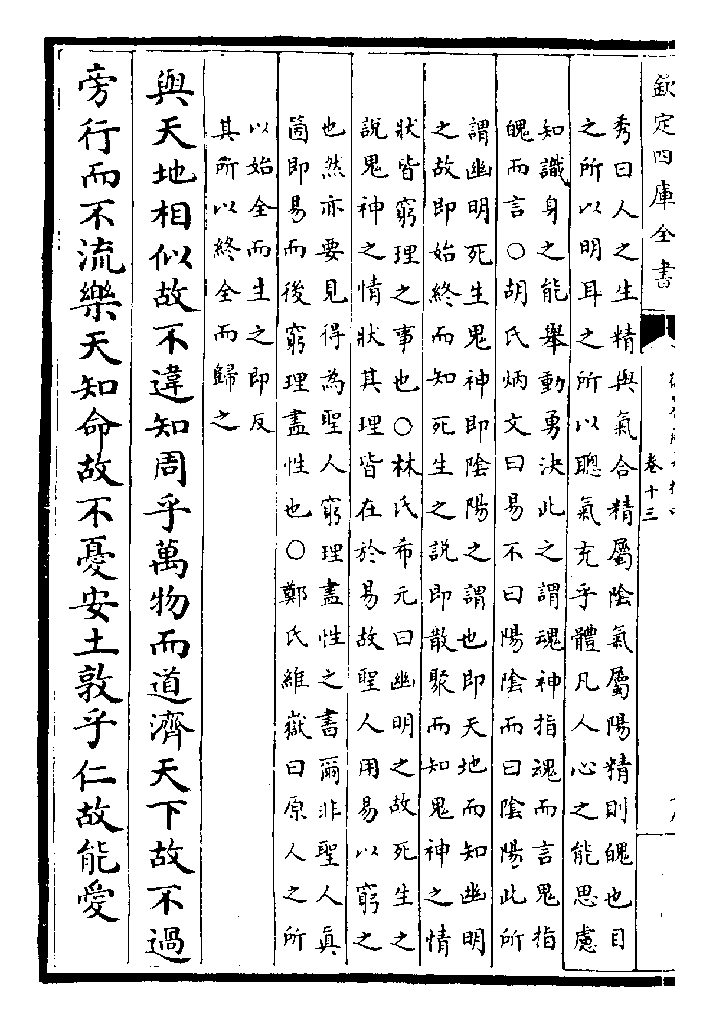 欽定四庫全書
卷十三
秀曰人之生精與氣合精屬陰氣屬陽精則魄也目
之所以明耳之所以聰氣充乎體凡人心之能思慮
知識身之能舉動勇決此之謂魂神指魂而言鬼指
魄而言○胡氏炳文曰易不曰陽陰而曰陰陽此所
謂幽明死生鬼神即陰陽之謂也即天地而知幽明
之故即始終而知死生之説即散聚而知鬼神之情
狀皆窮理之事也○林氏希元曰幽明之故死生之
説鬼神之情狀其理皆在於易故聖人用易以窮之
也然亦要見得為聖人窮理盡性之書爾非聖人真
箇即易而後窮理盡性也○鄭氏維嶽曰原人之所
以始全而生之即反
其所以終全而歸之
與天地相似故不違知周乎萬物而道濟天下故不過
旁行而不流樂天知命故不憂安土敦乎仁故能愛